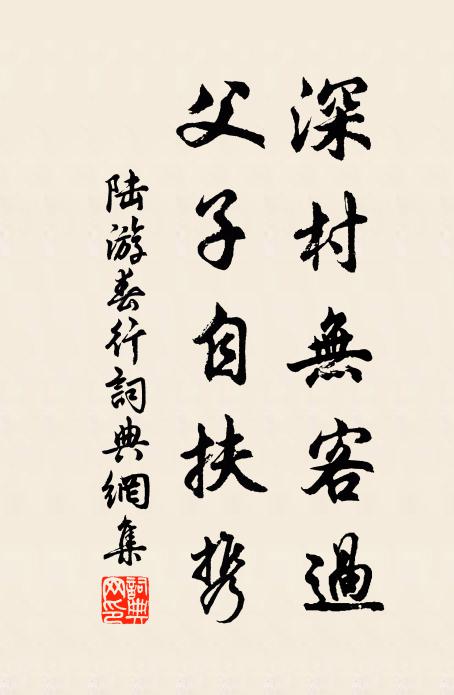 深村無客過
父子自扶携
陆游春行詞典網集
詞典
网印